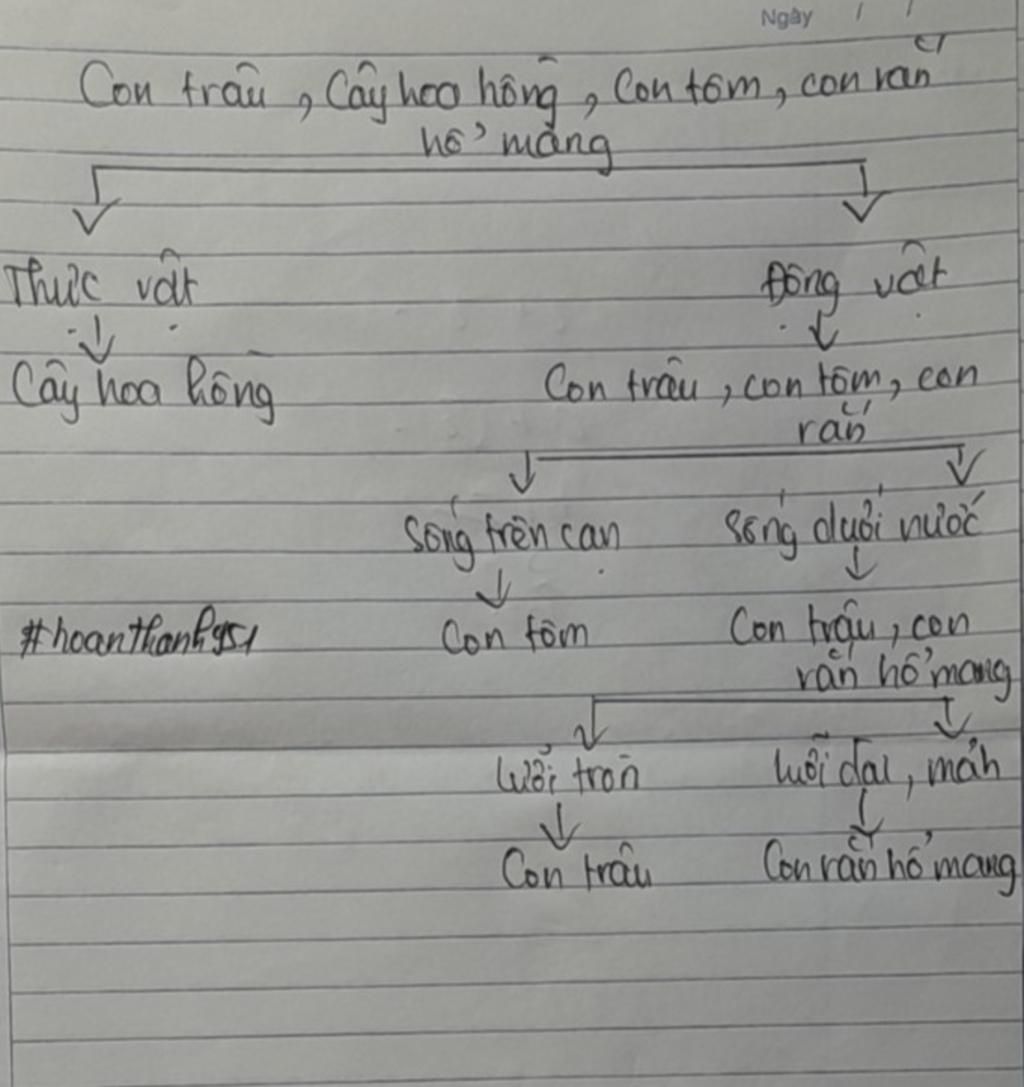 Ngày / /
Con trâu, Cây hoa hồng, Con tôm, con rắn
hổ mang
Thực vật
Động vật
Cây hoa hồng
Con trâu, con tôm, con
rắn
Sống trên cạn
Sống dưới nước
Con tôm
Con trâu, con
rắn hổ mang
#hoanthanh951
lưỡi tròn
lưỡi dài, mảnh
Con trâu
Con rắn hổ mang